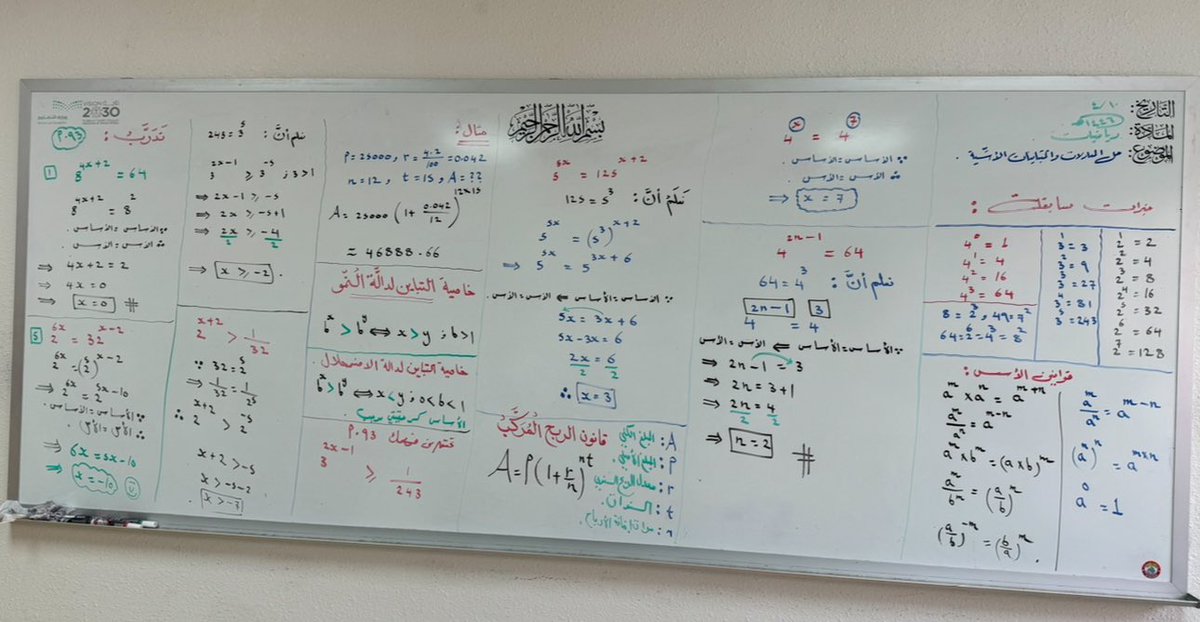 التاريخ: ٤/١٠
١٤٤٦هـ
المادة: رياضيات
الموضوع: حل المعادلات والمتباينات الأسية.
خبرات سابقة:
4⁰ = 1
4¹ = 4
4² = 16
4³ = 64
3¹ = 3
3² = 9
3³ = 27
3⁴ = 81
3⁵ = 243
2¹ = 2
2² = 4
2³ = 8
2⁴ = 16
2⁵ = 32
2⁶ = 64
2⁷ = 128
8 = 2³, 49 = 7²
64 = 2⁶ = 4³ = 8²
قوانين الأسس:
aᵐ × aⁿ = aᵐ⁺ⁿ
aᵐ × bᵐ = (a×b)ᵐ
(a/b)⁻ⁿ = (b/a)ⁿ
aᵐ/aⁿ = aᵐ⁻ⁿ
(aᵐ)ⁿ = aᵐˣⁿ
a⁰ = 1
4ˣ = 4⁷
∵ الأساس = الأساس.
∴ الأس = الأس.
⇒ x = 7
4²ⁿ⁻¹ = 64
نعلم أنَّ: 64 = 4³
4^(2n-1) = 4^3
∵ الأساس = الأساس ⇐ الأس = الأس
⇒ 2n-1 = 3
⇒ 2n = 3+1
⇒ 2n/2 = 4/2
⇒ n = 2 #
بسم الله الرحمن الرحيم
5^(5x) = 125^(x+2)
نعلم أنَّ: 125 = 5³
5^(5x) = (5³)^(x+2)
⇒ 5^(5x) = 5^(3x+6)
∵ الأساس = الأساس ⇐ الأس = الأس.
5x = 3x+6
5x-3x = 6
2x/2 = 6/2
∴ x = 3
قانون الربح المُركَّب
A = P(1 + r/n)^nt
A: المبلغ الكلي
P: المبلغ الأصلي.
r: معدل الربح السنوي
t: السنوات.
n: مرات إضافة الأرباح.
مثال:
P = 25000, r = 4.2/100 = 0.042
n = 12, t = 15, A = ??
A = 25000 (1 + 0.042/12)^(12×15)
≈ 46888.66
خاصية التباين لدالَّة النُمو
bˣ > bʸ ⇔ x > y ; b > 1
خاصية التباين لدالة الاضمحلال
bˣ > bʸ ⇔ x < y ; 0 < b < 1
P.93
3^(2x-1) ≥ 1/243
نعلم أنَّ: 243 = 3⁵
3^(2x-1) ≥ 3^-5 ; 3 > 1
⇒ 2x-1 ≥ -5
⇒ 2x ≥ -5+1
⇒ 2x/2 ≥ -4/2
⇒ x ≥ -2.
2^(x+2) > 1/32
∵ 32 = 2⁵
⇒ 1/32 = 1/2⁵
∴ 2^(x+2) > 2^-5
x+2 > -5
x > -5-2
x > -7
وزارة التعليم
VISION رؤية
2030
تدرَّب: P.93
1 8^(4x+2) = 64
8^(4x+2) = 8^2
∵ الأساس = الأساس.
∴ الأس = الأس.
⇒ 4x+2 = 2
⇒ 4x = 0
⇒ x = 0 #
5 2^(6x) = 32^(x-2)
2^(6x) = (2⁵)^(x-2)
⇒ 2^(6x) = 2^(5x-10)
∵ الأساس = الأساس.
∴ الأس = الأس.
⇒ 6x = 5x-10
⇒ x = -10